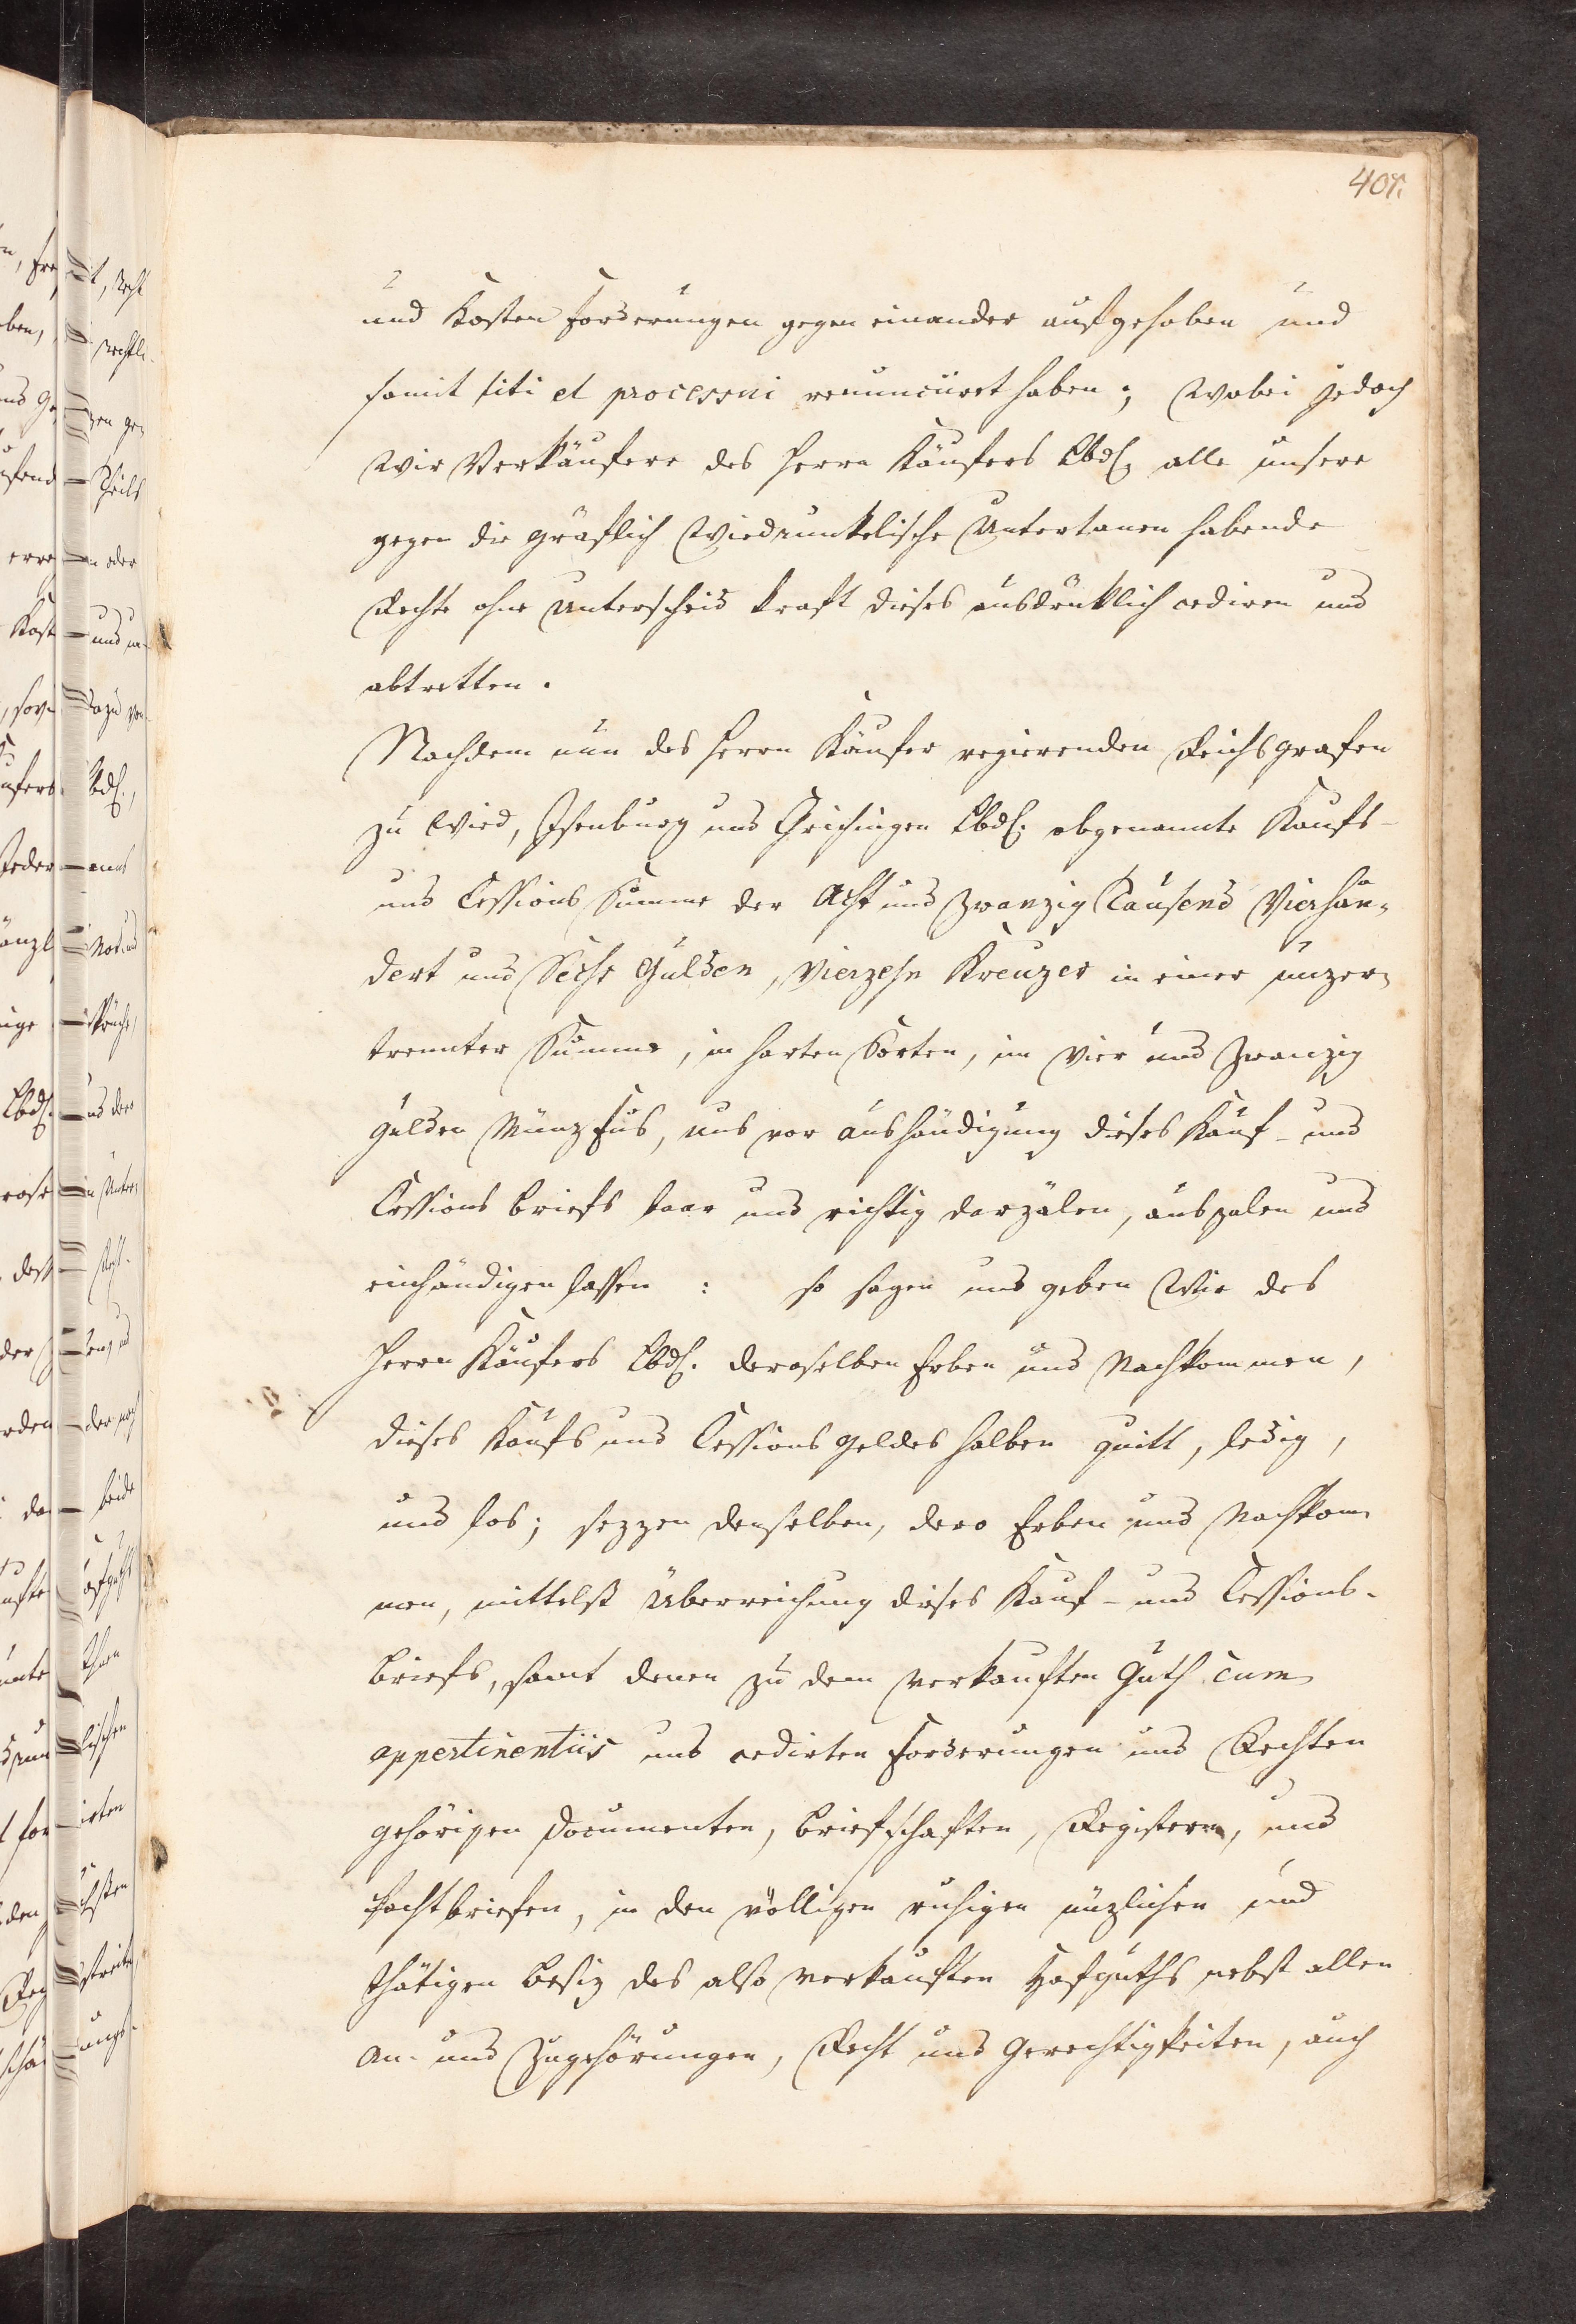 407.
und Kosten Forderungen gegen einander aufgehoben und
somit liti et processui renunciirt haben; Wobei jedoch
Wir Verkäufere des Herrn Käufers Lbd. alle unsere
gegen die Gräflich Wiedrunkelische Untertanen habende
Rechte ohne Unterscheid kraft dieses ausdrüklich cediren und
abtretten.
Nachdem nun des Herrn Käufer regierenden Reichsgrafen
zu Wied, Isenburg und Crichingen Lbd. obgenannte Kaufs-
und Cessions Summe der Acht und zwanzig Tausend Vierhun-
dert und Sechs Gulden, Vierzehn Kreuzer in einer unzer-
trennter Summe, in harten Sorten, im Vier und Zwanzig
Gulden Münz Fus, uns vor Aushändigung dieses Kauf- und
Cessions Briefs baar und richtig darzälen, auszalen und
einhändigen lassen : so sagen und geben Wir des
Herrn Käufers Lbd. deroselben Erben und Nachkommen,
dieses Kaufs und Cessions Geldes halben quitt, ledig,
und los; sezzen denselben, dero Erben und Nachkom-
men, mittelst Überreichung dieses Kauf- und Cessions-
Briefs, samt denen zu dem verkauften Guth cum
appertinentiis und cedirten Forderungen und Rechten
gehörigen Documenten, Briefschaften, Registern, und
Pachtbriefen, in den völligen ruhigen nüzlichen und
thätigen Besiz des also verkauften Hofguths nebst allen
An- und Zugehörungen, Recht und Gerechtigkeiten, auch